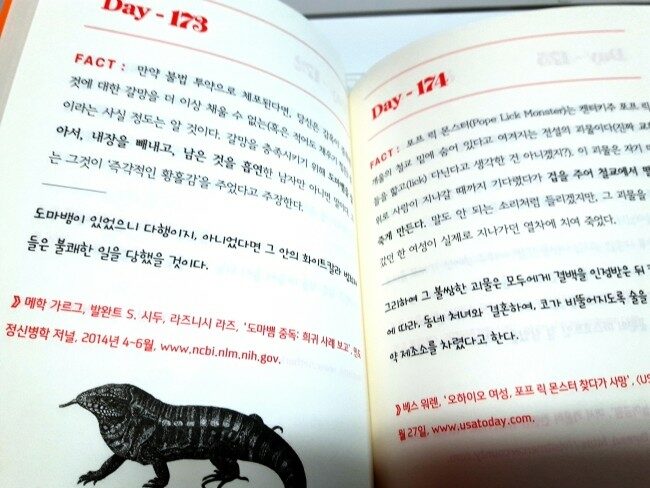 Day - 173
FACT : 만약 불법 투약으로 체포된다면, 당신은 감옥이
것에 대한 갈망을 더 이상 채울 수 없는(혹은 적어도 채우기
이라는 사실 정도는 알 것이다. 갈망을 충족시키기 위해 도마뱀을
아서, 내장을 빼내고, 남은 것을 흡연한 남자만 아니면 말이다.
는 그것이 '즉각적인 황홀감'을 주었다고 주장한다.
도마뱀이 있었으니 다행이지, 아니었다면 그 안의 화이트칼라
들은 불쾌한 일을 당했을 것이다.
》 메학 가르그, 발완트 S. 시두, 라즈니시 라즈, '도마뱀 중독: 희귀 사례 보고',
정신병학 저널, 2014년 4-6월, www.ncbi.nlm.nih.gov.
Day - 174
FACT : 포프 릭 몬스터(Pope Lick Monster)는 켄터키주 포프 릭
개울의 철교 밑에 숨어 있다고 여겨지는 전설의 괴물이다(진짜
들을 핥고(lick) 다닌다고 생각한 건 아니겠지?). 이 괴물은 자기
위로 사람이 지나갈 때까지 기다렸다가 겁을 주어 철교에서
죽게 만든다. 말도 안 되는 소리처럼 들리겠지만, 그 괴물을
갔던 한 여성이 실제로 지나가던 열차에 치여 죽었다.
그리하여 그 불쌍한 괴물은 모두에게 결백을 인정받은 뒤
에 따라, 동네 처녀와 결혼하여, 코가 비뚤어지도록 술을
약 제조소를 차렸다고 한다.
》 베스 워렌, '오하이오 여성, 포프 릭 몬스터 찾다가 사망',
월 27일, www.usatoday.com.